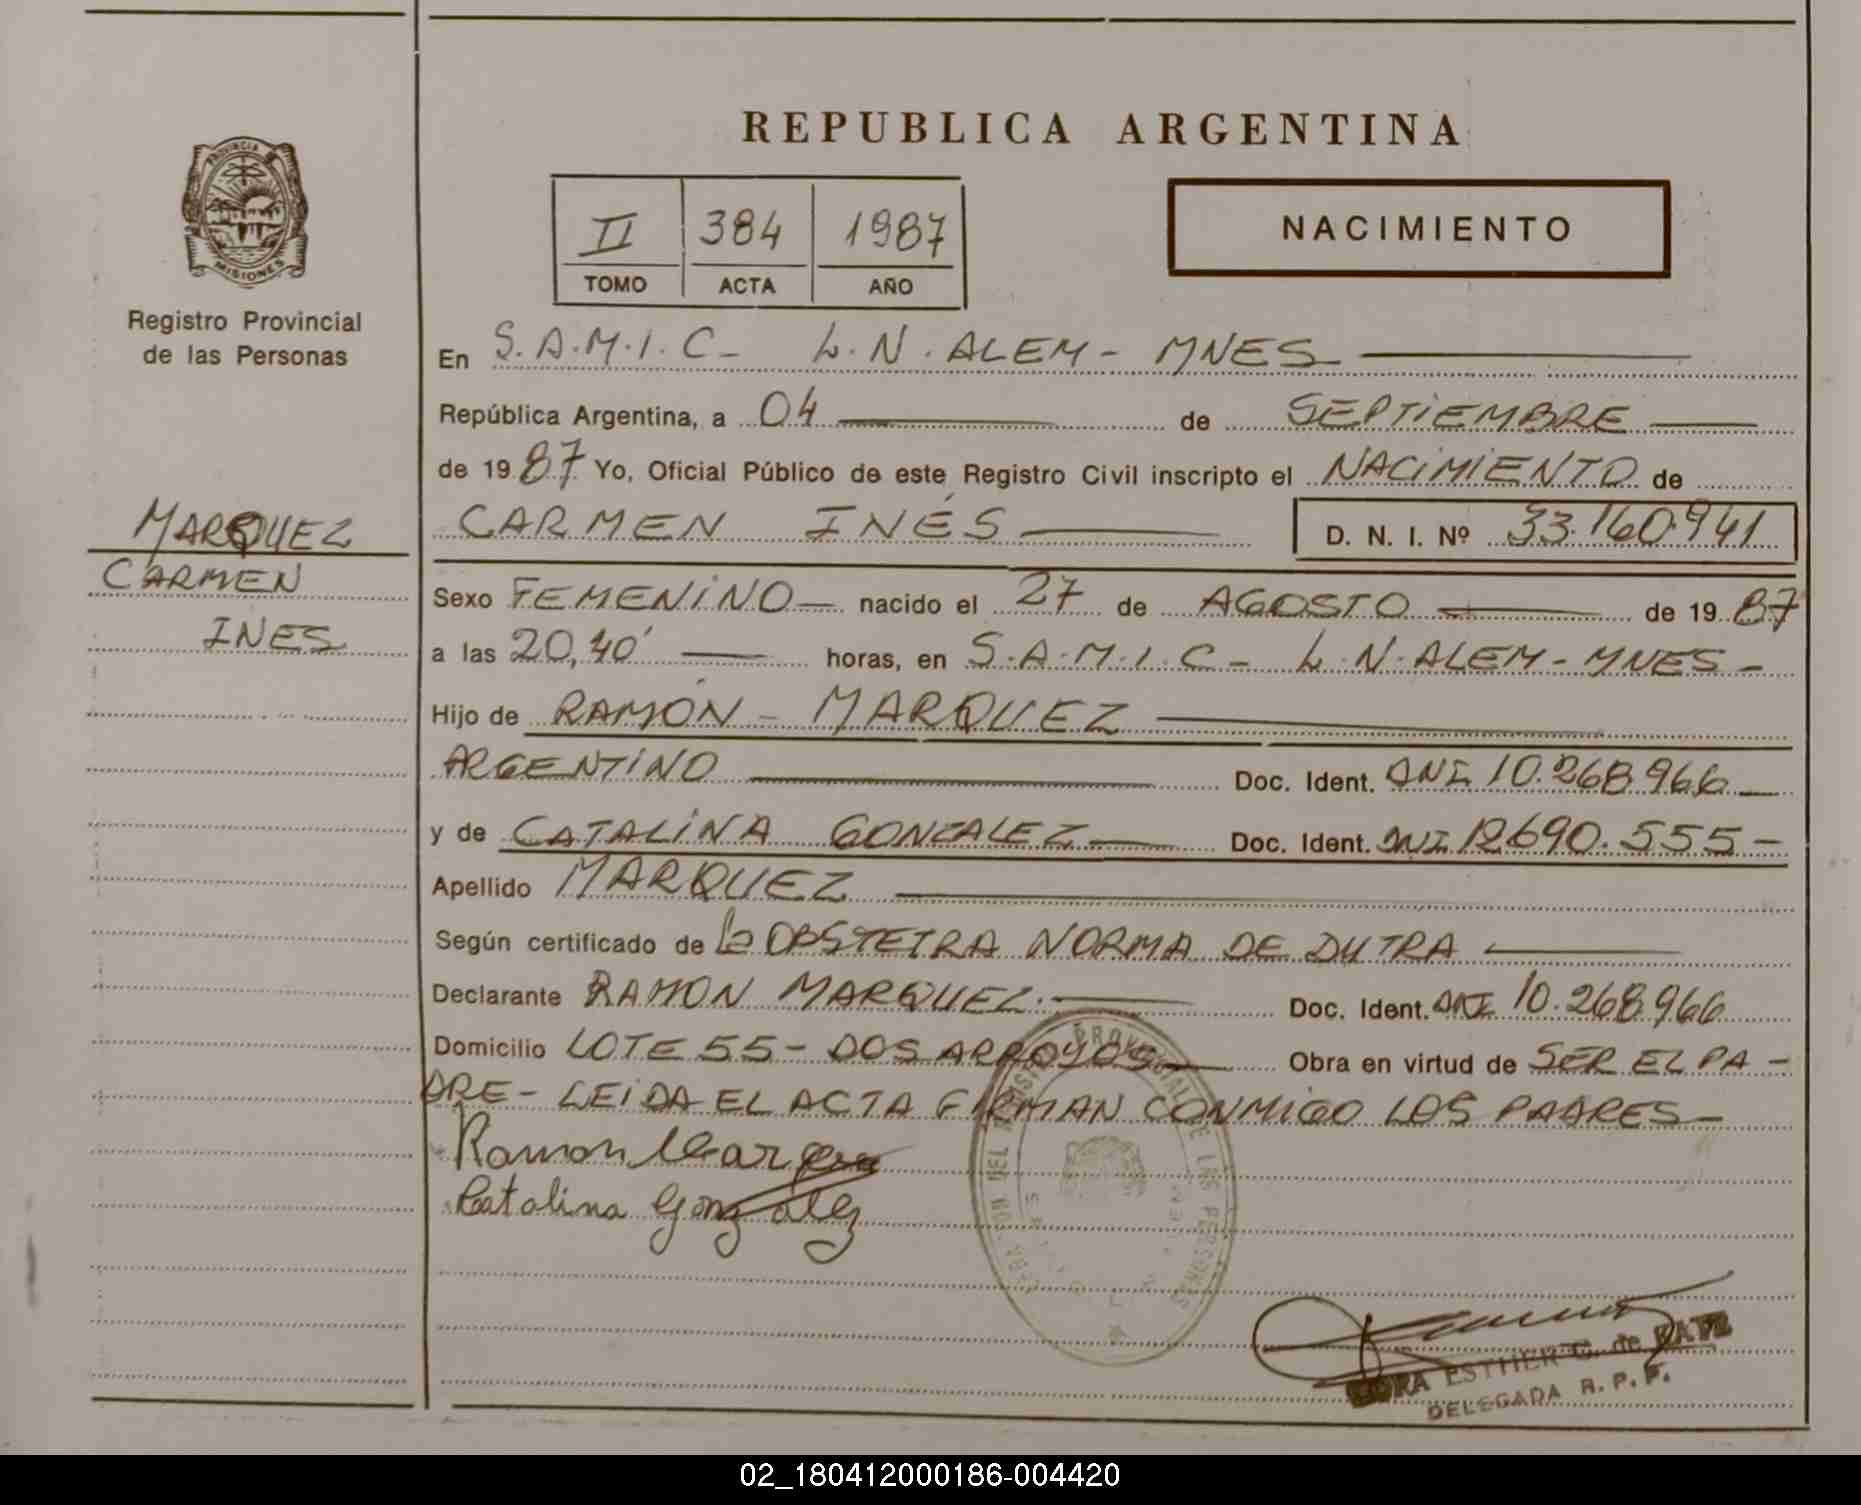 REPUBLICA ARGENTINA
PROVINCIA
MISIONES
Registro Provincial
de las Personas
II 384 1987
TOMO ACTA AÑO
NACIMIENTO
En S.A.M.I.C- L.N.ALEM- MNES
República Argentina, a 04 de SEPTIEMBRE
de 1987 Yo, Oficial Público de este Registro Civil inscripto el NACIMIENTO de
MARQUEZ
CARMEN
INES
CARMEN INÉS D. N. I. Nº 33.160.941
Sexo FEMENINO nacido el 27 de AGOSTO de 1987
a las 20,40' horas, en S.A.M.I.C- L.N.ALEM-MNES-
Hijo de RAMÓN - MARQUEZ
ARGENTINO Doc. Ident. DNI 10.268.966
y de CATALINA GONZALEZ Doc. Ident. DNI 12690.555-
Apellido MARQUEZ
Según certificado de la OBSTETRA NORMA DE DUTRA
Declarante RAMON MARQUEZ. Doc. Ident. DNI 10.268.966
Domicilio LOTE 55- DOS ARROYOS Obra en virtud de SER EL PA-
DRE- LEIDA EL ACTA FIRMAN CONMIGO LOS PADRES-
Ramon Marquez
Catalina Gonzalez
PROVINCIAL DE LAS PERSONAS
ESTHER G. de
DELEGADA R. P. P.
02_180412000186-004420